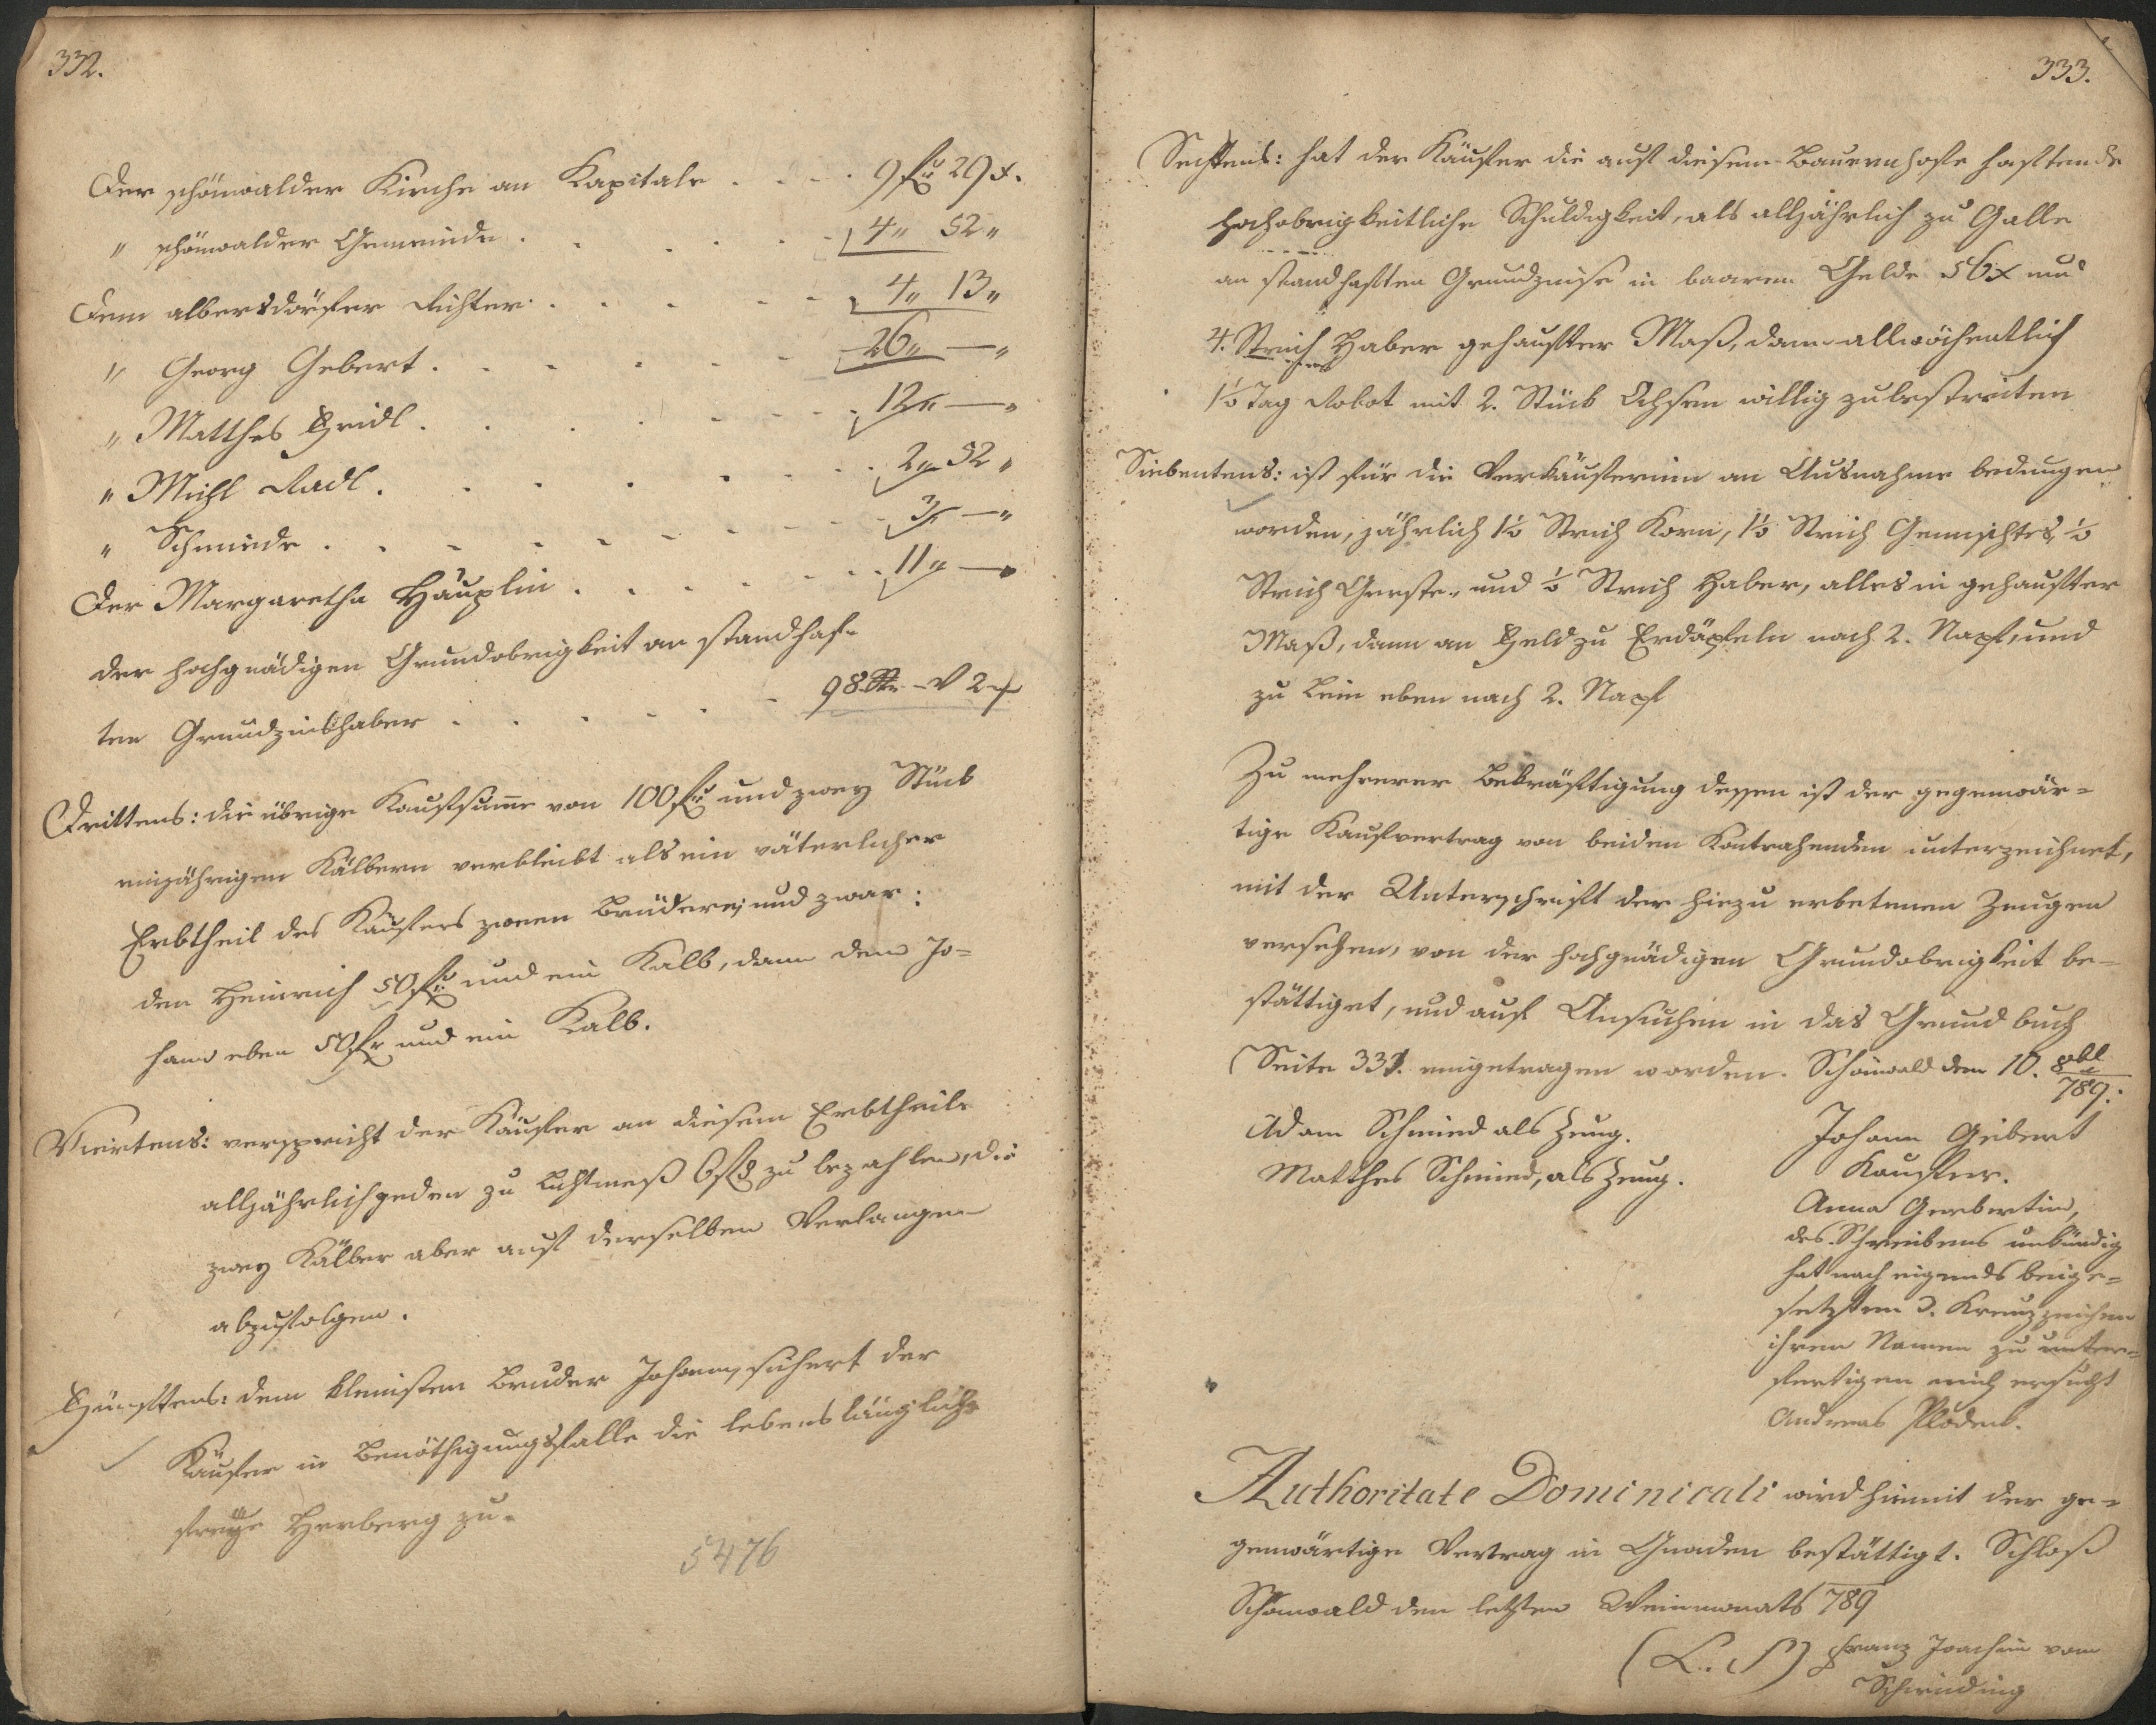 332.
Der schönwalder Kirche an Kapitale . . . . 9 fl 29 x.
" schönwalder Gemeinde . . . . . 4 " 52 "
Dem albersdörfer Richter . . . . . 4 " 13 "
" Georg Gebert . . . . . 26 " — "
" Matthes Heidl . . . . . 12 " — "
" Michl Radl . . . . . 2 " 52 "
" Schmiede . . . . . 3 " — "
Der Margaretha Häuplin . . . . . 11 " — "
der hochgnädigen Grundobrigkeit an standhaf-
ten Grundzinshaber . . . . . 98 Str. 2
Drittens: die übrige Kaufsumme von 100 fl und zwey Stück
einjährigen Kälbern verbleibt als ein väterlicher
Erbtheil des Käufers zween Brüdern; und zwar:
dem Heinrich 50 fl und ein Kalb, dann dem Jo-
hann eben 50 fl und ein Kalb.
Viertens: verspricht der Käufer an diesem Erbtheile
alljährlich jeden zu Lichtmeß 6 fl zu bezahlen, die
zwey Kälber aber auf derselben Verlangen
abzufolgen.
Fünftens: dem kleinsten Bruder Johann, sichert der
Käufer in Benöthigungsfalle die lebenslängliche
freye Herberg zu.
5476
333.
Sechstens: hat der Käufer die auf diesem Bauernhofe haftende
hochobrigkeitliche Schuldigkeit, als alljährlich zu Galle
an standhaften Grundzinse in baaren Gelde 56 x und
4. Strich Haber gehaufter Maß, dann allwöchentlich
1½ Tag Robot mit 2. Stück Ochsen willig zu bestreiten
Siebentens: ist für die Verkäuferinn an Ausnahme bedungen
worden, jährlich 1½ Strich Korn, 1½ Strich Gemischtes, ½
Strich Gerste, und ½ Strich Haber, alles in gehaufter
Maß, dann an Feld zu Erdäpfeln nach 2. Napf, und
zu Lein eben nach 2. Napf
Zu mehrerer Bekräftigung dessen ist der gegenwär-
tige Kaufvertrag von beiden Kontrahenden unterzeichnet,
mit der Unterschrift der hiezu erbetenen Zeugen
versehen, von der hochgnädigen Grundobrigkeit be-
stättiget, und auf Ansuchen in das Grundbuch
Seite 331. eingetragen worden. Schönwald dem 10. 8bl
789.
Adam Schmied als Zeug.
Matthes Schmied, als Zeug.
Johann Geibert
Kaufer.
Anna Geebertin,
des Schreibens unkündig
hat nach eigends beige-
setzten 3. Kreuzzeichen
ihren Namen zu unter-
fertigen mich ersucht
Andreas Plödent.
Authoritate Dominicali wird hiemit der ge-
genwärtige Vertrag in Gnaden bestättigt. Schloß
Schönwald den letzten Weinmonats 789
(L. S) Franz Joachim vom
Scheinding